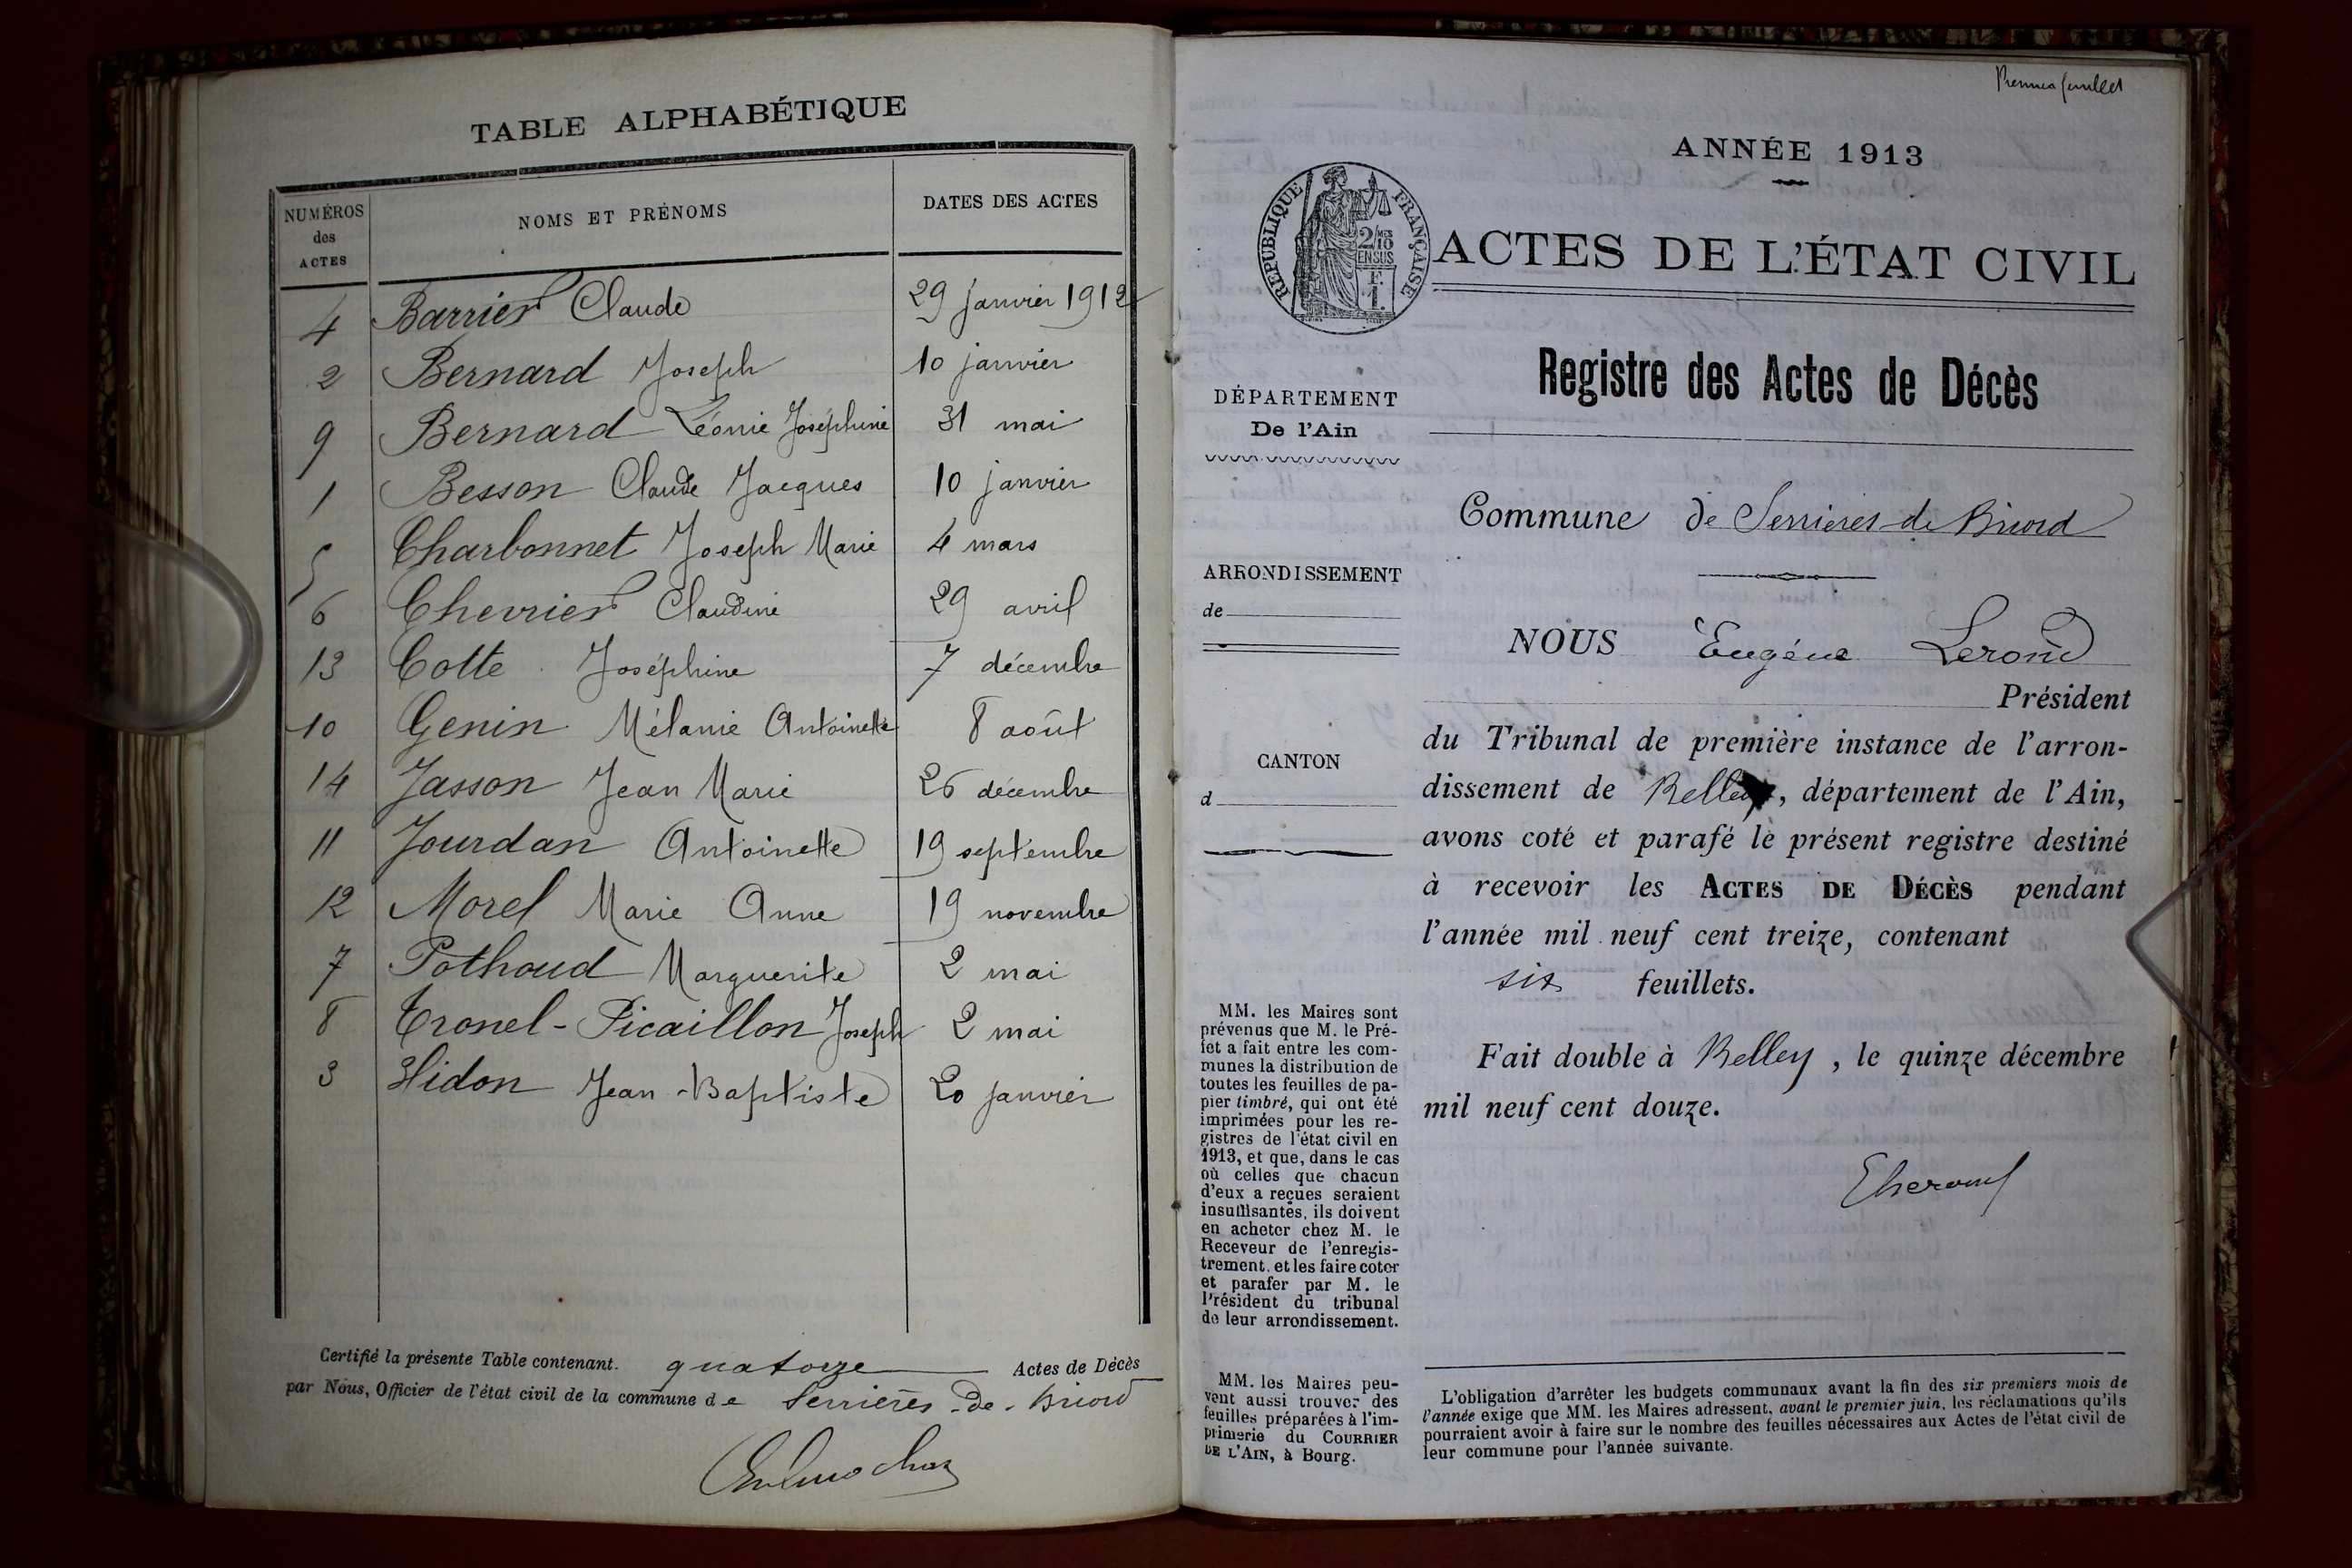 TABLE ALPHABÉTIQUE
NUMÉROS des ACTES NOMS ET PRÉNOMS DATES DES ACTES
4 Barrier Claude 29 janvier 1912
2 Bernard Joseph 10 janvier
9 Bernard Léonie Joséphine 31 mai
1 Besson Claude Jacques 10 janvier
5 Charbonnet Joseph Marie 4 mars
6 Chevrier Claudine 29 avril
13 Cotte Joséphine 7 décembre
10 Genin Mélanie Antoinette 8 août
14 Jasson Jean Marie 26 décembre
11 Jourdan Antoinette 19 septembre
12 Morel Marie Anne 19 novembre
7 Pothoud Marguerite 2 mai
8 Tronel-Picaillon Joseph 2 mai
3 Hidon Jean-Baptiste 20 janvier
Certifié la présente Table contenant quatorze Actes de Décès
par Nous, Officier de l'état civil de la commune de Serrières-de-Briord
Premier feuillet
ANNÉE 1913
RÉPUBLIQUE FRANÇAISE
2/10
MES
EN SUS
F.
1.
ACTES DE L'ÉTAT CIVIL
Registre des Actes de Décès
DÉPARTEMENT
De l'Ain
Commune de Serrières-de Briord
ARRONDISSEMENT
de
CANTON
d
NOUS Eugène Lerond
Président
du Tribunal de première instance de l'arron-
dissement de Belley, département de l'Ain,
avons coté et parafé le présent registre destiné
à recevoir les ACTES DE DÉCÈS pendant
l'année mil neuf cent treize, contenant
six feuillets.
Fait double à Belley, le quinze décembre
mil neuf cent douze.
MM. les Maires sont
prévenus que M. le Pré-
fet a fait entre les com-
munes la distribution de
toutes les feuilles de pa-
pier timbré, qui ont été
imprimées pour les re-
gistres de l'état civil en
1913, et que, dans le cas
où celles que chacun
d'eux a reçues seraient
insuffisantes, ils doivent
en acheter chez M. le
Receveur de l'enregis-
trement, et les faire coter
et parafer par M. le
Président du tribunal
de leur arrondissement.
MM. les Maires peu-
vent aussi trouver des
feuilles préparées à l'im-
primerie du COURRIER
DE L'AIN, à Bourg.
L'obligation d'arrêter les budgets communaux avant la fin des six premiers mois de
l'année exige que MM. les Maires adressent, avant le premier juin, les réclamations qu'ils
pourraient avoir à faire sur le nombre des feuilles nécessaires aux Actes de l'état civil de
leur commune pour l'année suivante.